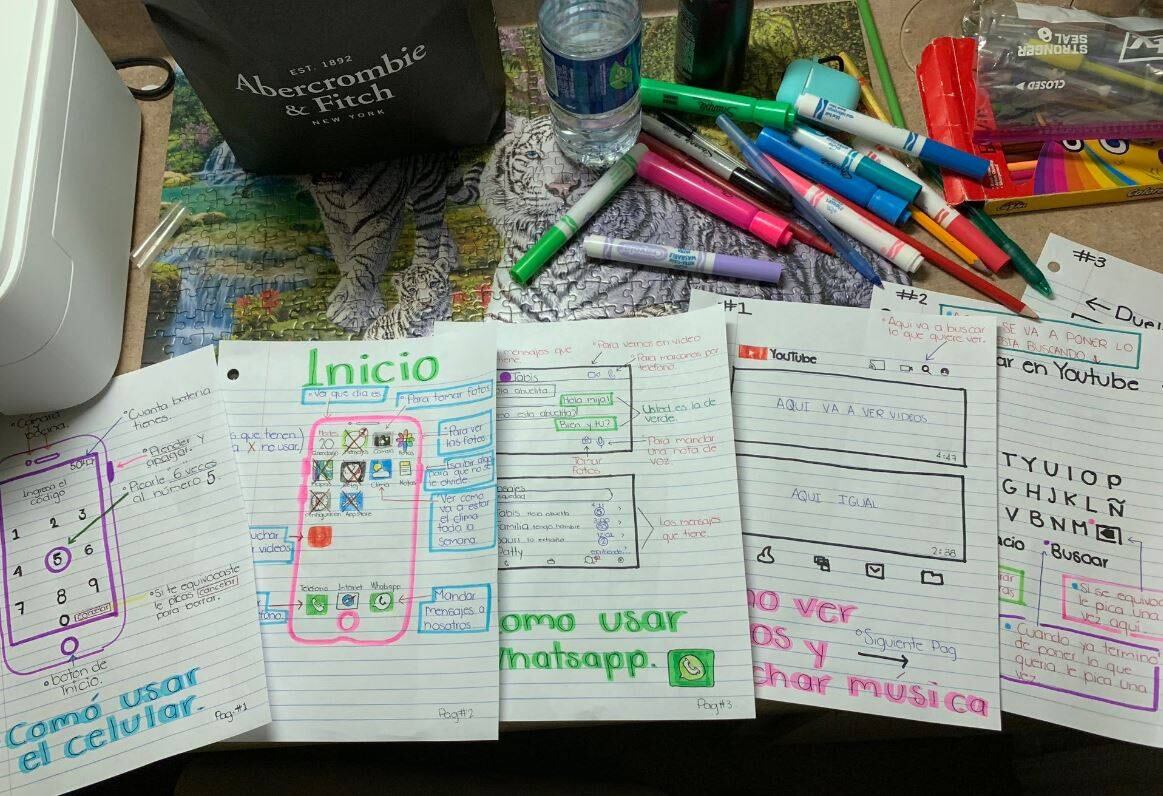 EST. 1892
Abercrombie
& Fitch
NEW YORK
STRONGER
SEAL
CLOSED
Cuanta bateria
tienes.
Prender y
apagar.
Picarle "6 veces
al número 5.
Ingresa el
código
1 2 3
4 5 6
7 8 9
0 cancelar
Si te equivocaste
le picas cancelar
para borrar.
botón de
Inicio.
Comó usar
el celular.
Pag.#1
Inicio
Ve que dia es
Para tomar fotos
que tienen
X no usar.
Para ver
las fotos
Escribir algo
para que no se
le olvide.
Ver como
va a estar
el clima
toda la
semana.
20
Fotos
Clima
Notas
App Store
uchar
videos
Telefono
Internet
Whatsapp
Mandar
mensajes a
nosotros
Pag#2
mensajes que
tiene.
Para vernos en video
Para marcarnos por
telefono.
Tabis
abuelita
Hola mija!
esta abuelita?
Bien y tu?
Usted es la de
verde.
Para mandar
una nota de
voz.
Tomar
Fotos
Tabis hola abuelita
Familia tengo hambre
Patty
Los mensajes
que tiene.
omo usar
hatsapp.
Pag#3
#1
Aqui va a buscar
lo que quiere ver.
YouTube
AQUI VA A VER VIDEOS
4:47
AQUI IGUAL
2:38
no ver
os y
char música
Siguiente Pag
#2
SE VA A PONER LO
ESTA BUSCANDO
ar en Youtube
T Y U I O P
G H J K L Ñ
V B N M
acio
Buscar
Si se equivoco
le pica una
vez aqui
Cuando ya termino
de poner lo que
queria le pica una
vez
#3